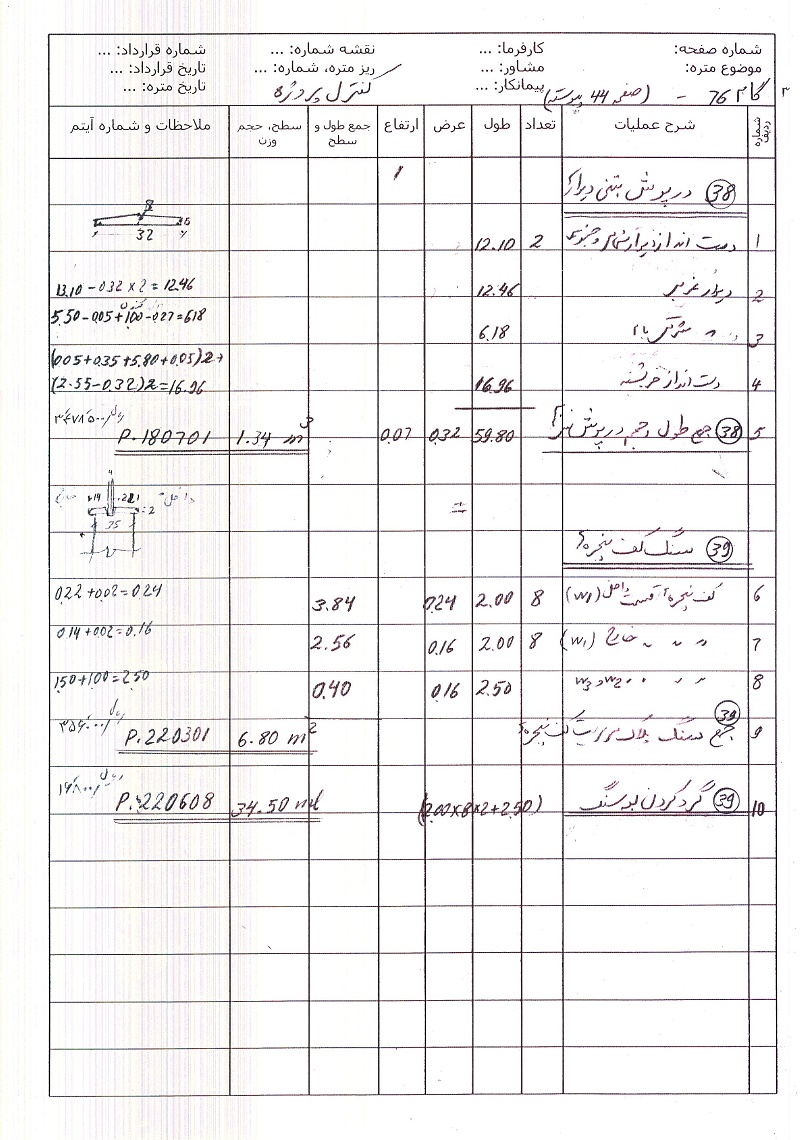 شماره صفحه: کارفرما: ... نقشه شماره: ... شماره قرارداد: ...
موضوع متره: مشاور: ... ریز متره، شماره: ... تاریخ قرارداد: ...
پیمانکار: ... تاریخ متره: ...
گام 76 - (صفحه 44 پیوسته) کنترل پروژه
شماره ردیف شرح عملیات تعداد طول عرض ارتفاع جمع طول و سطح سطح، حجم وزن ملاحظات و شماره آیتم
38 درپوش بتنی دیوارها
32
1 دست انداز دیوار شمالی و جنوبی 2 12.10
2 دیوار غربی 12.46 13.10 - 0.32 x 2 = 12.46
3 " " مشرقی بام 6.18 5.50 - 0.05 + 1.00 - 0.27 = 6.18
(0.05 + 0.35 + 5.80 + 0.05) 2 +
4 دست انداز خرپشته 16.96 (2.55 - 0.32) 2 = 16.96
5 38 جمع طول و حجم درپوش بتنی 59.80 0.32 0.07 1.34 m³ P.180701
داخل خارج
35
39 سنگ کف پنجره‌ها
6 کف پنجره‌ها قسمت داخل (W1) 8 2.00 0.24 3.84 0.22 + 0.02 = 0.24
7 " " " خارج (W1) 8 2.00 0.16 2.56 0.14 + 0.02 = 0.16
8 " " W2 و W3 2.50 0.16 0.40 1.50 + 1.00 = 2.50
9 39 جمع سنگ پلاک مرمریت کف پنجره‌ها 6.80 m² P.220301
10 39 گرد کردن لبه سنگ (2.00 x 8 x 2 + 2.50) 34.50 ml P.220608